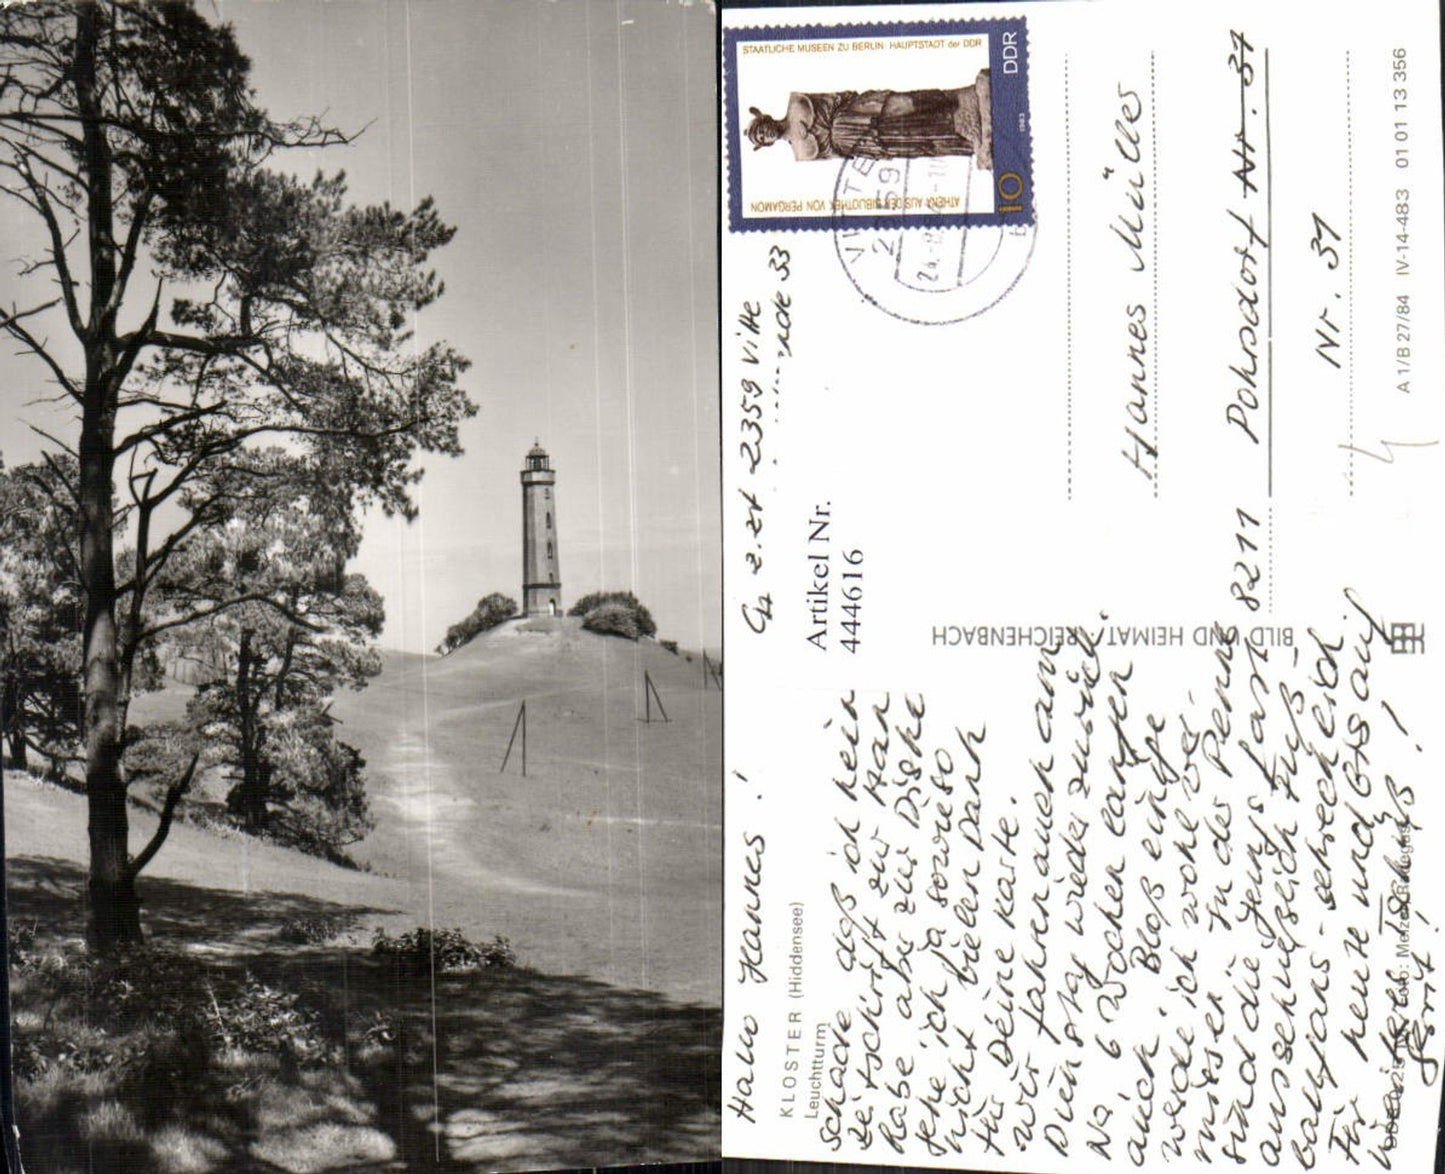 STAATLICHE MUSEEN ZU BERLIN HAUPTSTADT der DDR
DDR
1983
10
ATHENA AUS DER BIBLIOTHEK VON PERGAMON
VITTE
2359
24.-8.84
z.zt 2359 Vitte
33
Artikel Nr.
444616
Hallo Hannes !
KLOSTER (Hiddensee)
Leuchtturm
Schade daß ich kein
Zeitschrift zur Han
habe aber zur Diske
gehe ich ja sowieso
nicht vielen Dank
für Deine Karte.
Wir fahren auch am
Dienstag wieder zurück.
Na 6 Wochen langen
auch. Bloß einige
werde ich wohl ver-
missen. In der Penne
sind die Jungs fast
ausschließlich Fuß-
ballfans - schrecklich.
Für heute und Bis auf
Gerit !
BILD UND HEIMAT REICHENBACH
Hannes Müller
Pohrsdorf Nr. 37
Nr. 31
8211
A 1/B 27/84 IV-14-483 01 01 13 356